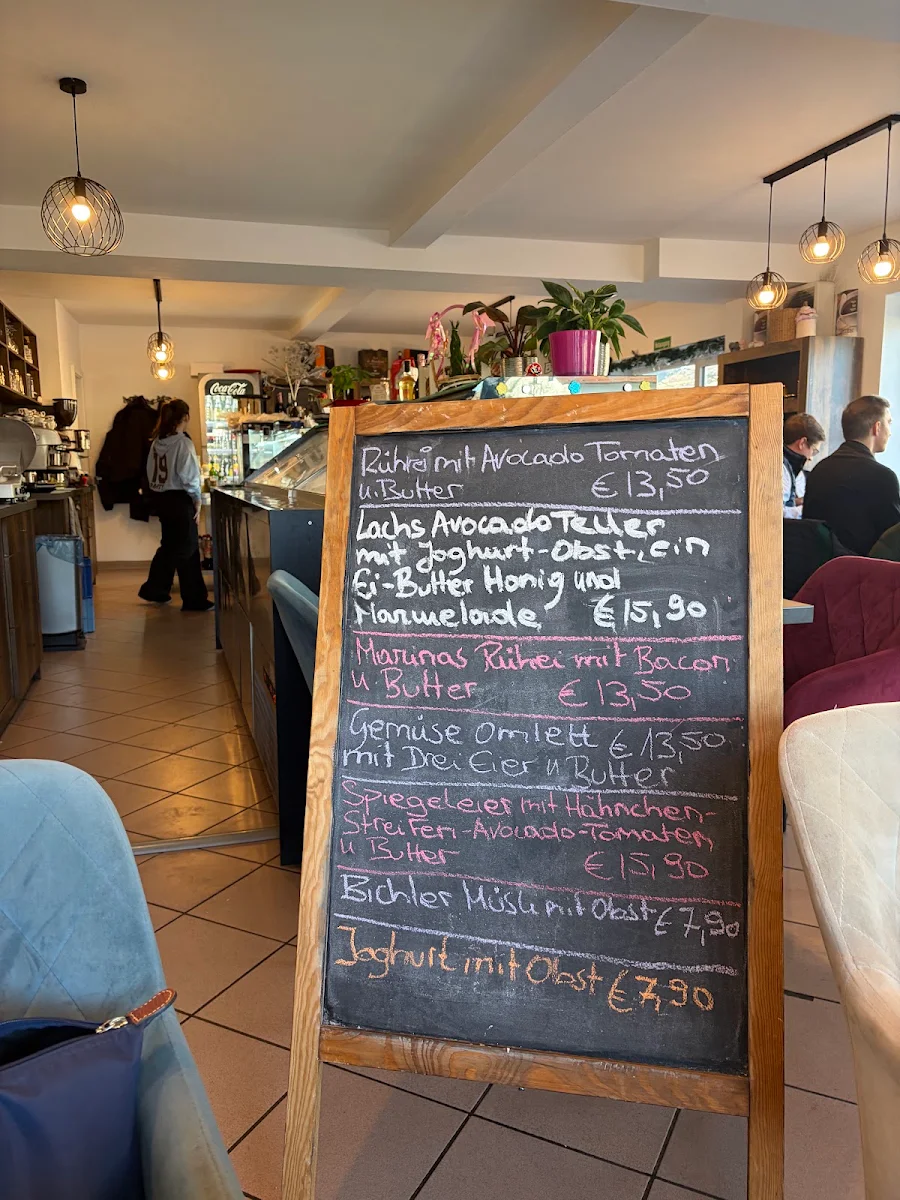 Coca-Cola
19
Rührei mit Avocado Tomaten
u. Butter € 13,50
Lachs Avocado Teller
mit Joghurt-Obst, ein
Ei-Butter Honig und
Marmelade € 15,90
Marinas Rührei mit Bacon
u Butter € 13,50
Gemüse Omlett € 13,50
mit Drei Eier u Butter
Spiegeleier mit Hähnchen-
Streifen-Avocado-Tomaten,
u Butter € 15,90
Bichler Müsli mit Obst € 7,90
Joghurt mit Obst € 7,90